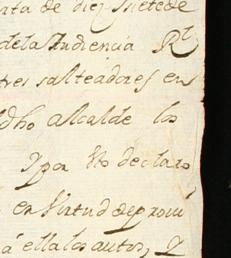 ata de diez Siete de
dela Audiencia Rl
tres salteadores en
dho alcalde los
Y por Ntto declaro
en Virtud de provi
a ella los autos, Y